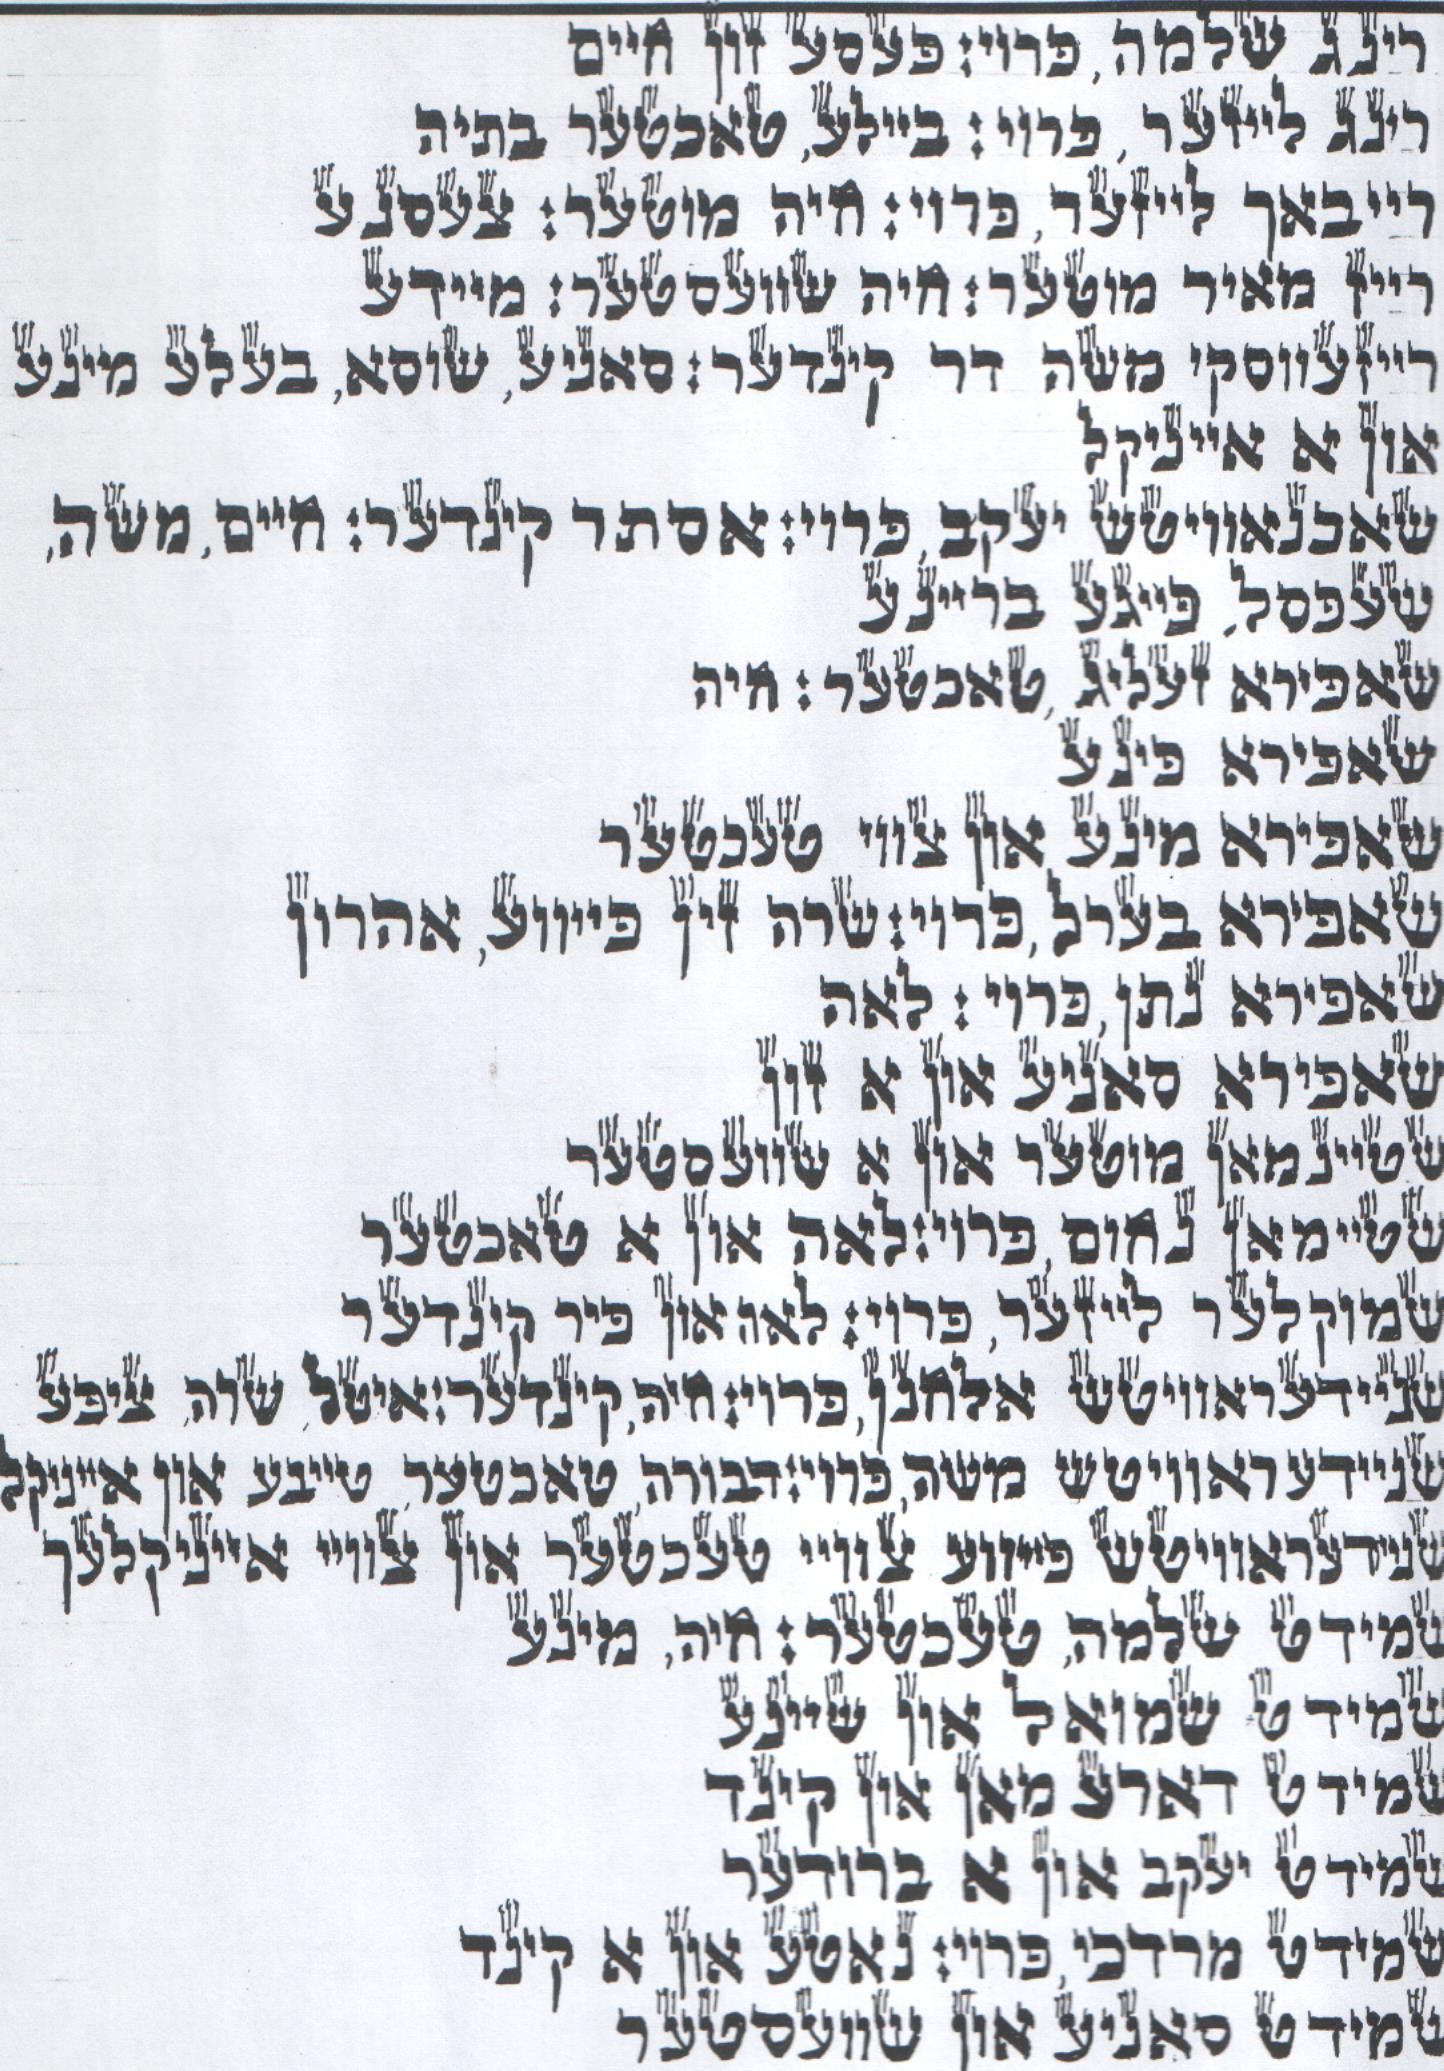 רינג שלמה, פרוי: פעסע זון חיים
רינג לייזער, פרוי: ביילע, טאכטער בתיה
רייבאך לייזער, פרוי: חיה מוטער: צעסנע
רייז מאיר מוטער: חיה שוועסטער: מיידע
רייזעווסקי משה דר קינדער: סאניע, שוסא, בעלע מינע
און א אייניקל
שאכנאוויטש יעקב, פרוי: אסתר קינדער: חיים, משה,
שעפסל, פייגע בריינע
שאפירא זעליג, טאכטער: חיה
שאפירא פינע
שאפירא מינע און צווי טעכטער
שאפירא בערל, פרוי: שרה זין פייווע, אהרון
שאפירא נתן, פרוי: לאה
שאפירא סאניע און א זון
שטיינמאן מוטער און א שוועסטער
שטיימאן נחום, פרוי: לאה און א טאכטער
שמוקלער לייזער, פרוי: לאה און פיר קינדער
שניידעראוויטש אלחנן, פרוי: חיה, קינדער: איטל, שרה, ציפע
שניידעראוויטש משה, פרוי: דבורה, טאכטער, טייבע און אייניקל
שניידעראוויטש פייווע צוויי טעכטער און צוויי אייניקלעך
שמידט שלמה, טעכטער: חיה, מינע
שמידט שמואל און שיינע
שמידט דארע מאן און קינד
שמידט יעקב און א ברודער
שמידט מרדכי, פרוי: נאטע און א קינד
שמידט סאניע און שוועסטער